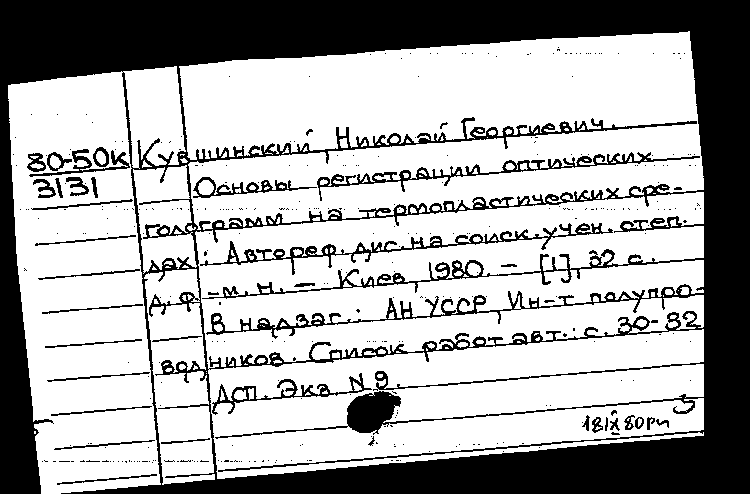 80-50к Кувшинский, Николай Георгиевич.
3131
Основы регистрации оптических
голограмм на термопластических сре-
дах: Автореф. дис. на соиск. учен. степ.
д. ф.-м. н. — Киев, 1980. — [1], 32 с.
В надзаг.: АН УССР, Ин-т полупро-
водников. Список работ авт.: с. 30-32
ДСП. Экз. N 9.
18IX80рп 3